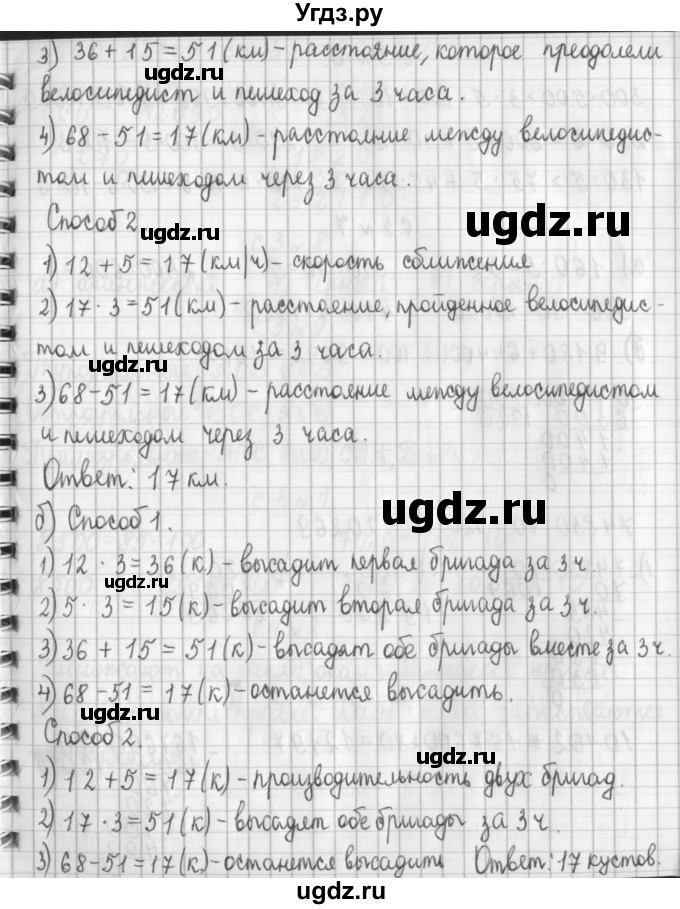 Угдз.ру
3) 36 + 15 = 51 (км) - расстояние, которое преодолели
ugdz.ru
велосипедист и пешеход за 3 часа.
4) 68 - 51 = 17 (км) - расстояние между велосипедис-
том и пешеходом через 3 часа.
Способ 2
ugdz.ru
ugdz.ru
1) 12 + 5 = 17 (км/ч) - скорость сближения
2) 17 · 3 = 51 (км) - расстояние, пройденное велосипедис-
том и пешеходом за 3 часа.
ugdz.ru
3) 68 - 51 = 17 (км) - расстояние между велосипедистом
и пешеходом через 3 часа.
Ответ: 17 км.
ugdz.ru
б) Способ 1.
1) 12 · 3 = 36 (к.) - высадит первая бригада за 3 ч.
ugdz.ru
2) 5 · 3 = 15 (к) - высадит вторая бригада за 3 ч.
3) 36 + 15 = 51 (к) - высадят обе бригады вместе за 3 ч.
4) 68 - 51 = 17 (к) - останется высадить.
ugdz.ru
Способ 2.
ugdz.ru
1) 12 + 5 = 17 (к) - производительность двух бригад.
2) 17 · 3 = 51 (к) - высадят обе бригады за 3 ч.
ugdz.ru
3) 68 - 51 = 17 (к.) - останется высадить Ответ: 17 кустов.
ugdz.ru